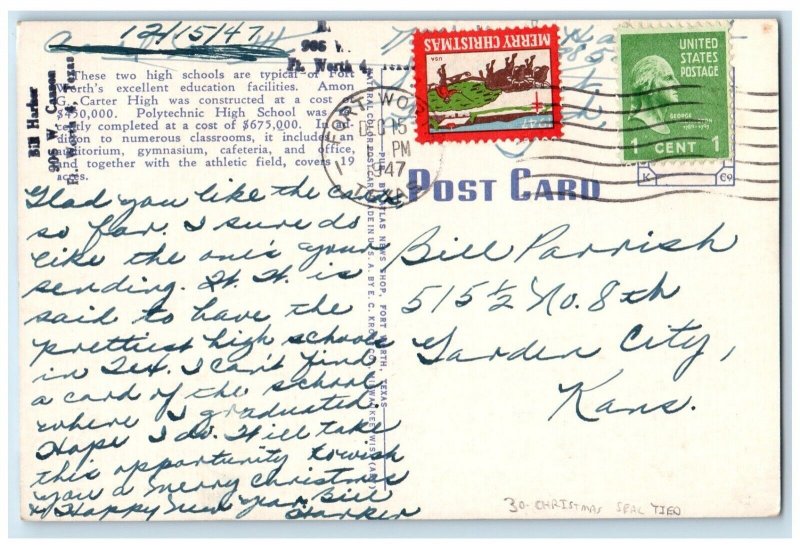 12/15/47
Bill Harker
906 W. Cannon
Ft. Worth 4, Texas
906 W.
Ft. Worth 4,
These two high schools are typical of Fort
Worth's excellent education facilities. Amon
G. Carter High was constructed at a cost
$450,000. Polytechnic High School was
completed at a cost of $675,000. In
dition to numerous classrooms, it includes
auditorium, gymnasium, cafeteria, and office,
and together with the athletic field, covers 19
acres.
Glad you like the cards
so far. I sure do
like the one's your
sending. Ft. W. is
said to have the
prettiest high schools
in Tex. I can't find
a card of the school
where I graduated.
Hope I do. Will take
this opportunity to wish
you a Merry Christmas
+ Happy New Year, Bill
Harker
NATURAL COLOR POST CARD MADE IN U.S.A. BY E. C. KROPP CO., MILWAUKEE, WIS.
PUB. BY ATLAS NEWS SHOP, FORT WORTH, TEXAS
MERRY CHRISTMAS
USA
1947
FORT WORTH
DEC 15
PM
1947
TEXAS
UNITED
STATES
POSTAGE
GEORGE WASHINGTON
1 CENT 1
POST CARD
K C9
Bill Parrish
515 ½ No. 8th
Garden City,
Kans.
30- CHRISTMAS SEAL TIED